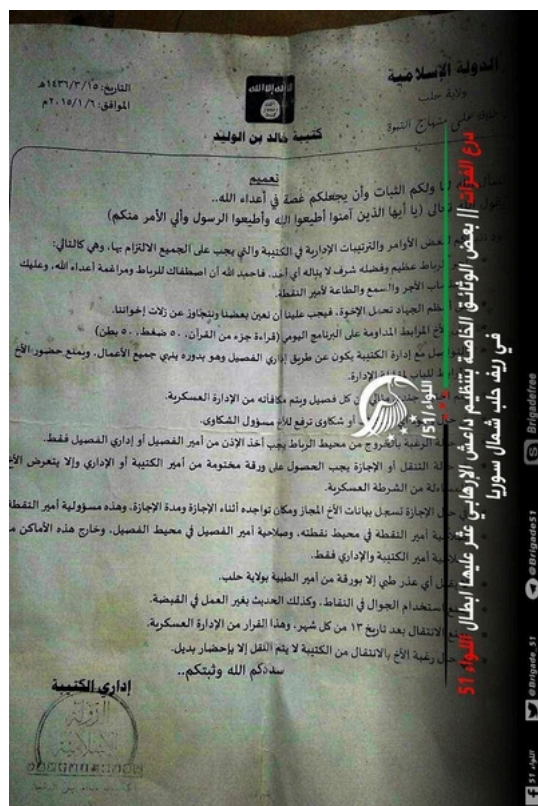 الدولة الإسلامية
ولاية حلب
خلافة على منهاج النبوة
لا إله إلا الله
كتيبة خالد بن الوليد
التاريخ: ١٤٣٦/٣/١٥هـ
الموافق: ٢٠١٥/١/٦م
تعميم
ولكم الثبات وأن يجعلكم غصة في أعداء الله..
تعالى (يا أيها الذين آمنوا أطيعوا الله وأطيعوا الرسول وألي الأمر منكم)
بعض الأوامر والترتيبات الإدارية في الكتيبة والتي يجب على الجميع الالتزام بها، وهي كالتالي:
الرباط عظيم وفضله شرف لا يناله أي أحد، فاحمد الله أن اصطفاك للرباط ومراغمة أعداء الله، وعليك
الأجر والسمع والطاعة لأمير النقطة.
الجهاد تحمل الإخوة، فيجب علينا أن نعين بعضنا ونتجاوز عن زلات إخواننا.
الأخ المرابط المداومة على البرنامج اليومي (قراءة جزء من القرآن، ٥٠ ضغط، ٥٠ بطن)
مع إدارة الكتيبة يكون عن طريق إداري الفصيل وهو بدوره ينهي جميع الأعمال، ويمنع حضور الأخ
الإدارة.
من كل فصيل ويتم مكافأته من الإدارة العسكرية.
أو شكاوى ترفع للأخ مسؤول الشكاوى.
الرغبة بالخروج من محيط الرباط يجب أخذ الإذن من أمير الفصيل أو إداري الفصيل فقط.
حالة التنقل أو الإجازة يجب الحصول على ورقة مختومة من أمير الكتيبة أو الإداري وإلا يتعرض الأخ
من الشرطة العسكرية.
الإجازة تسجل بيانات الأخ المجاز ومكان تواجده أثناء الإجازة ومدة الإجازة، وهذه مسؤولية أمير النقطة
أمير النقطة في محيط نقطته، وصلاحية أمير الفصيل في محيط الفصيل، وخارج هذه الأماكن
أمير الكتيبة والإداري فقط.
أي عذر طبي إلا بورقة من أمير الطبية بولاية حلب.
استخدام الجوال في النقاط، وكذلك الحديث بغير العمل في القبضة.
الانتقال بعد تاريخ ١٣ من كل شهر، وهذا القرار من الإدارة العسكرية.
حال رغبة الأخ بالانتقال من الكتيبة لا يتم النقل إلا بإحضار بديل.
سددكم الله وثبتكم..
إداري الكتيبة
الدولة
الإسلامية
درع الفرات || بعض الوثائق الخاصة بتنظيم داعش الإرهابي عثر عليها ابطال اللواء 51
في ريف حلب شمال سوريا
اللواء 51
اللواء 51
@Brigade_51
@Brigade51
Brigadefree